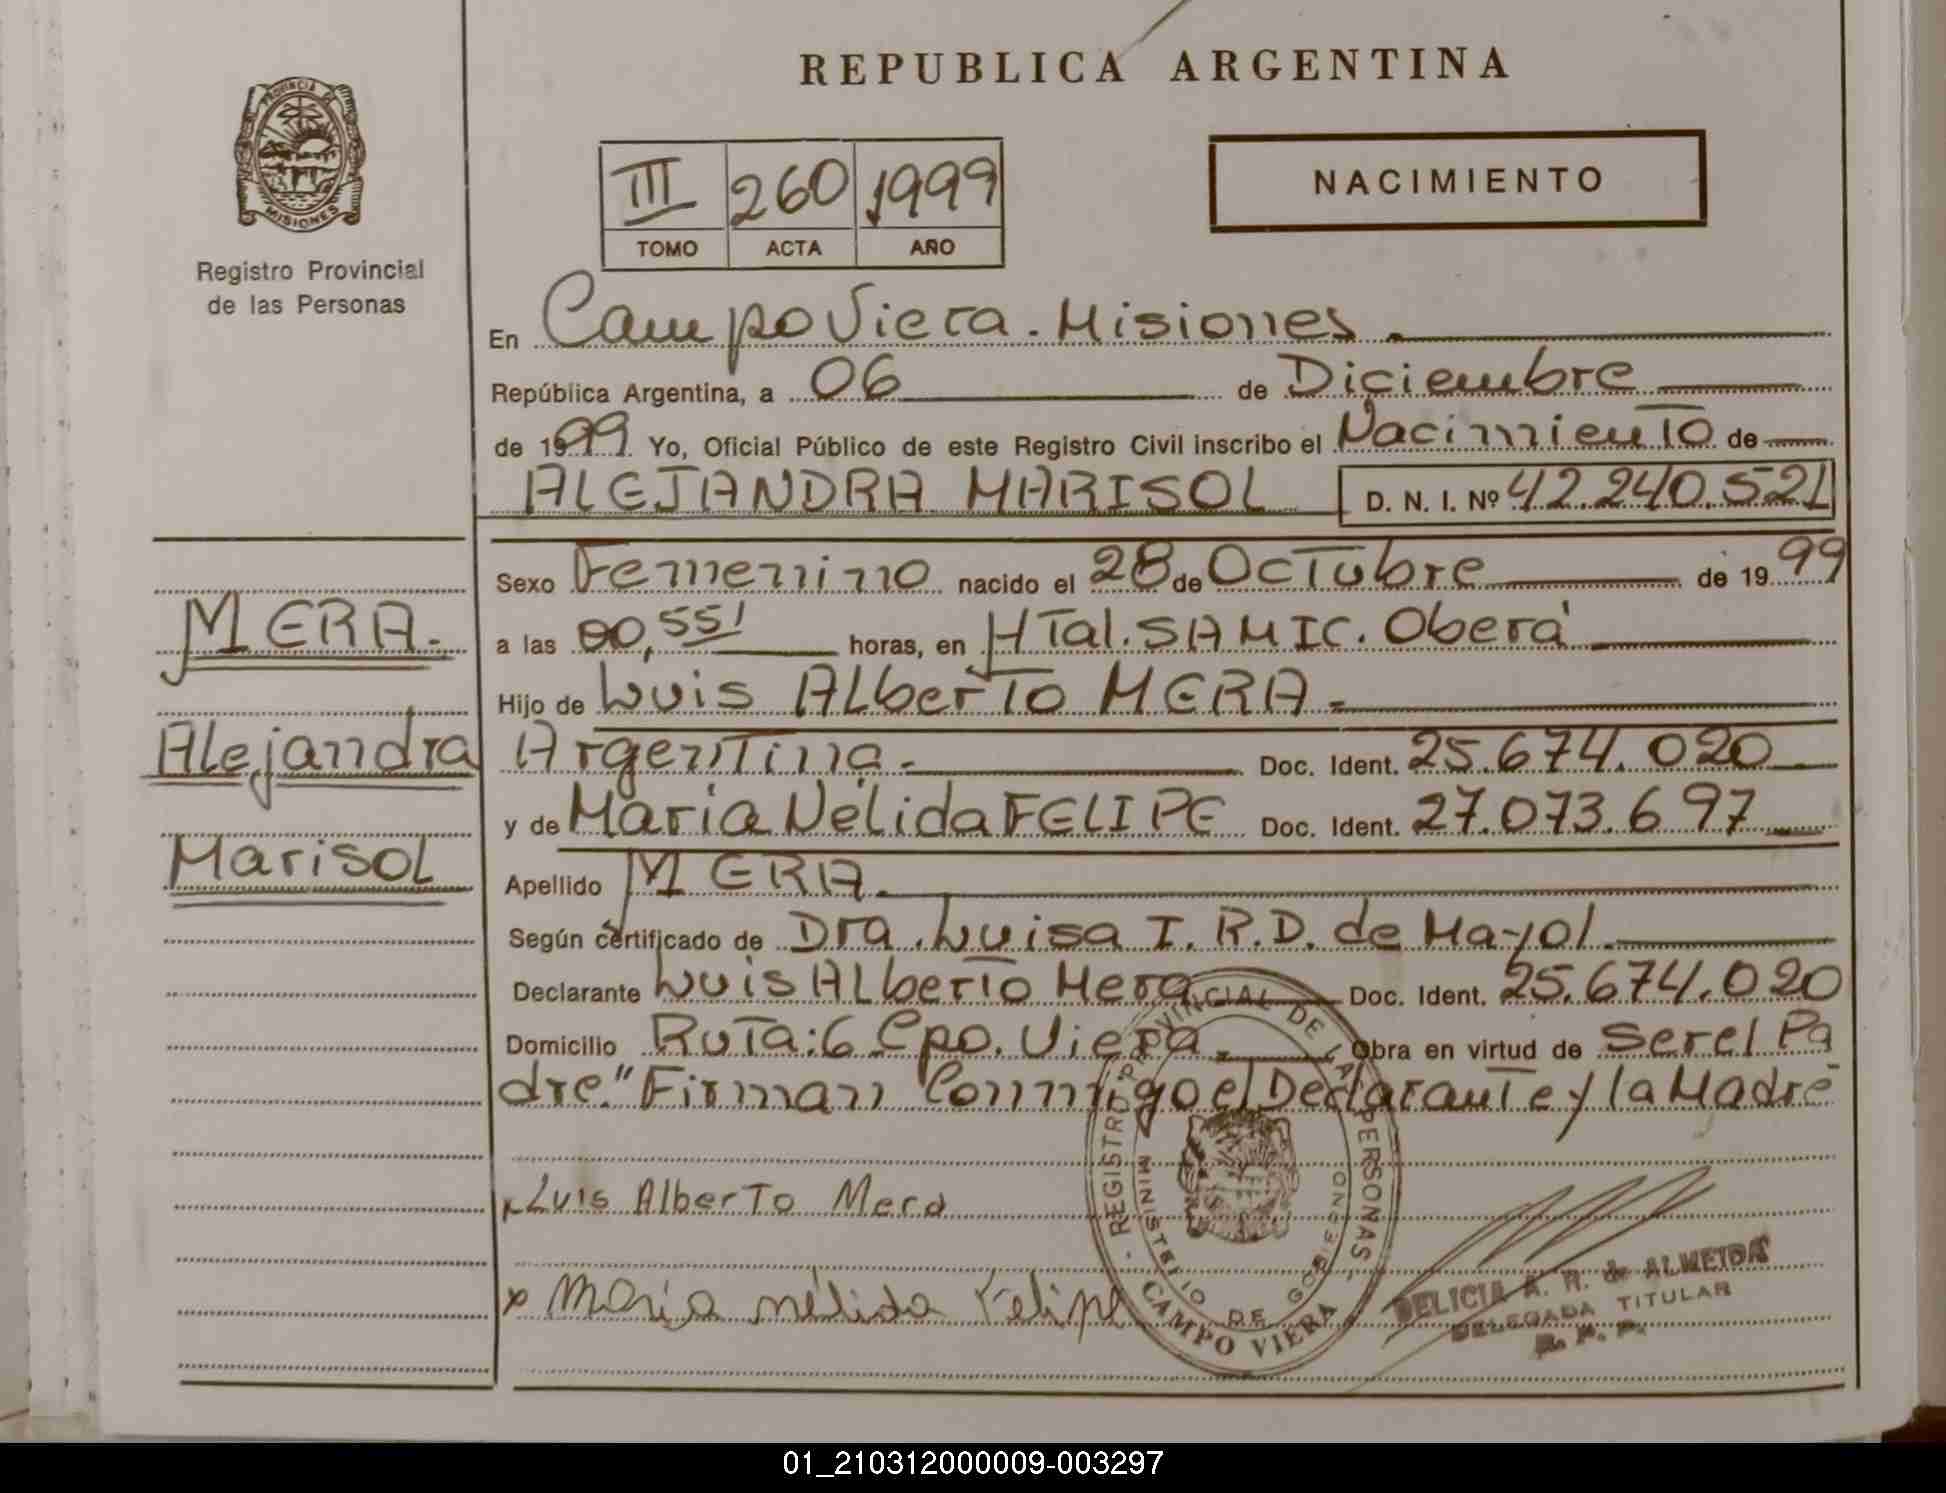 REPUBLICA ARGENTINA
PROVINCIA DE MISIONES
Registro Provincial
de las Personas
III 260 1999
TOMO ACTA AÑO
NACIMIENTO
En Campo Viera. Misiones.
República Argentina, a 06 de Diciembre
de 1999 Yo, Oficial Público de este Registro Civil inscribo el Nacimiento de
ALEJANDRA MARISOL D. N. I. Nº 42.240.521
MERA.
Alejandra
Marisol
Sexo Femenino nacido el 28 de Octubre de 1999
a las 00,55' horas, en HTal. SAMIC. Oberá
Hijo de Luis Alberto MERA.
Argentina. Doc. Ident. 25.674.020
y de Maria Nélida FELIPE Doc. Ident. 27.073.697
Apellido MERA.
Según certificado de Dra. Luisa I. R. D. de Mayol.
Declarante Luis Alberto Mera Doc. Ident. 25.674.020
Domicilio Ruta: 6 Cpo. Viera. Obra en virtud de ser el Pa
dre." Firman Conmigo el Declarante y la Madre
x Luis Alberto Mera
x Maria nélida Felipe
REGISTRO PROVINCIAL DE LAS PERSONAS
MINISTERIO DE GOBIERNO
CAMPO VIERA
DELICIA A. R. de ALMEIDA
DELEGADA TITULAR
R. P. P.
01_210312000009-003297